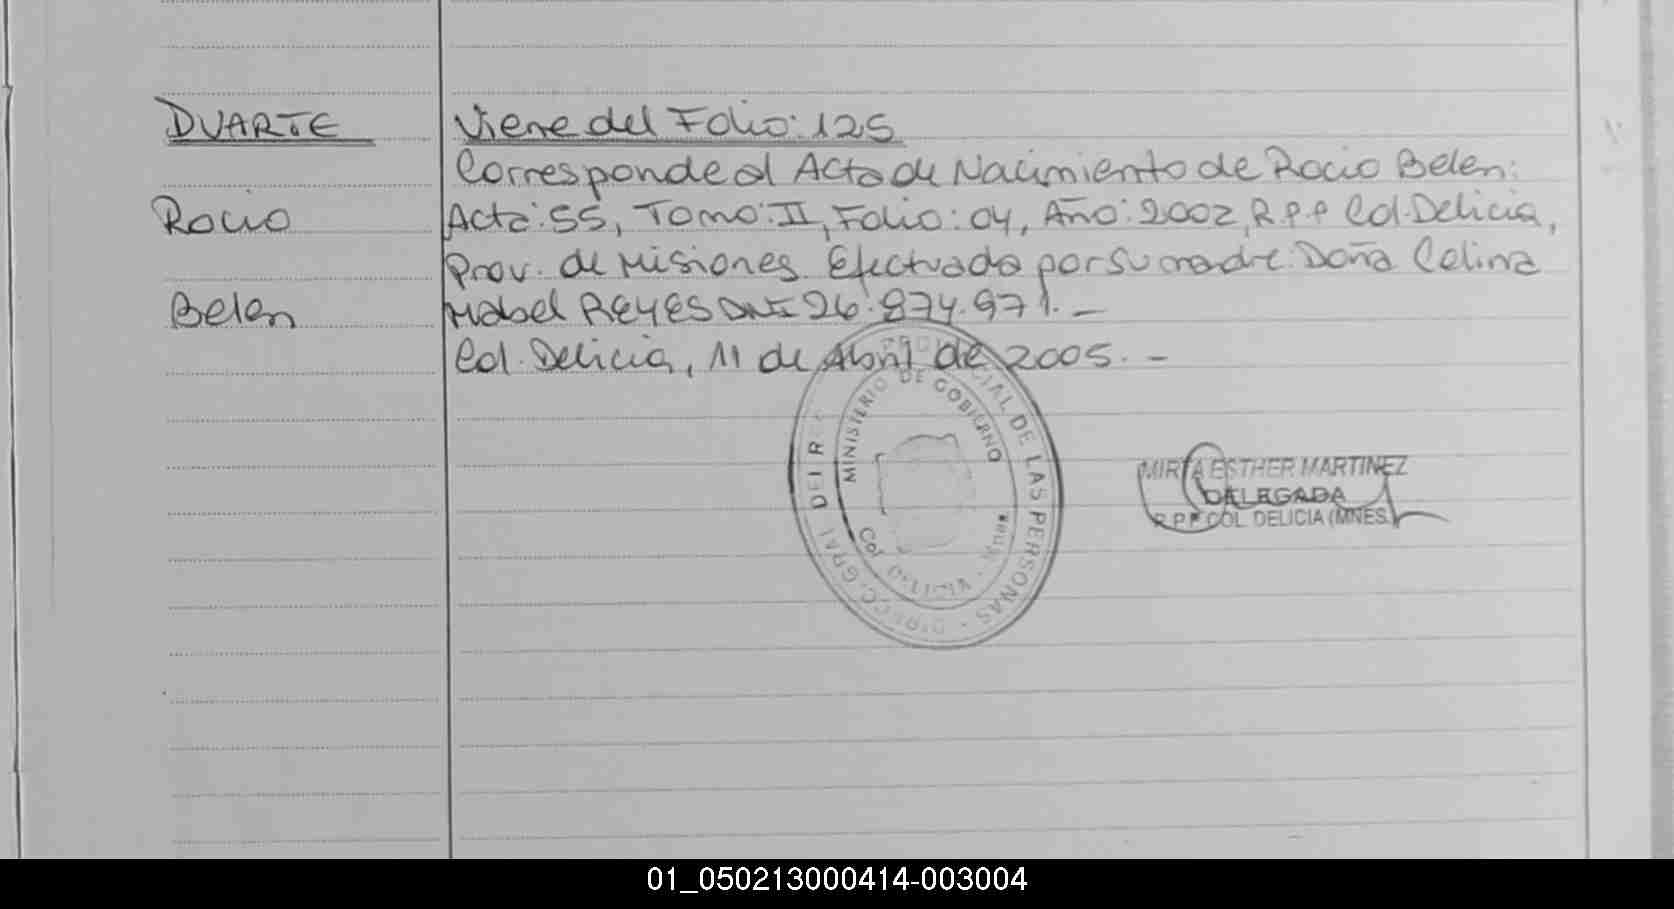 DUARTE
Viene del Folio: 125
Corresponde al Acta de Nacimiento de Rocio Belen:
Rocio
Acta: 55, Tomo: II, Folio: 04, Año: 2002, R.P.P Col. Delicia,
Prov. de Misiones. Efectuada por su madre Doña Celina
Belen
Mabel REYES DNI 26.874.971. —
Col. Delicia, 11 de Abril de 2005. —
DIRECC. GRAL DEL R PROVINCIAL DE LAS PERSONAS
MINISTERIO DE GOBIERNO
Col
MIRTA ESTHER MARTINEZ
DELEGADA
R P P COL. DELICIA (MNES.)
01_050213000414-003004